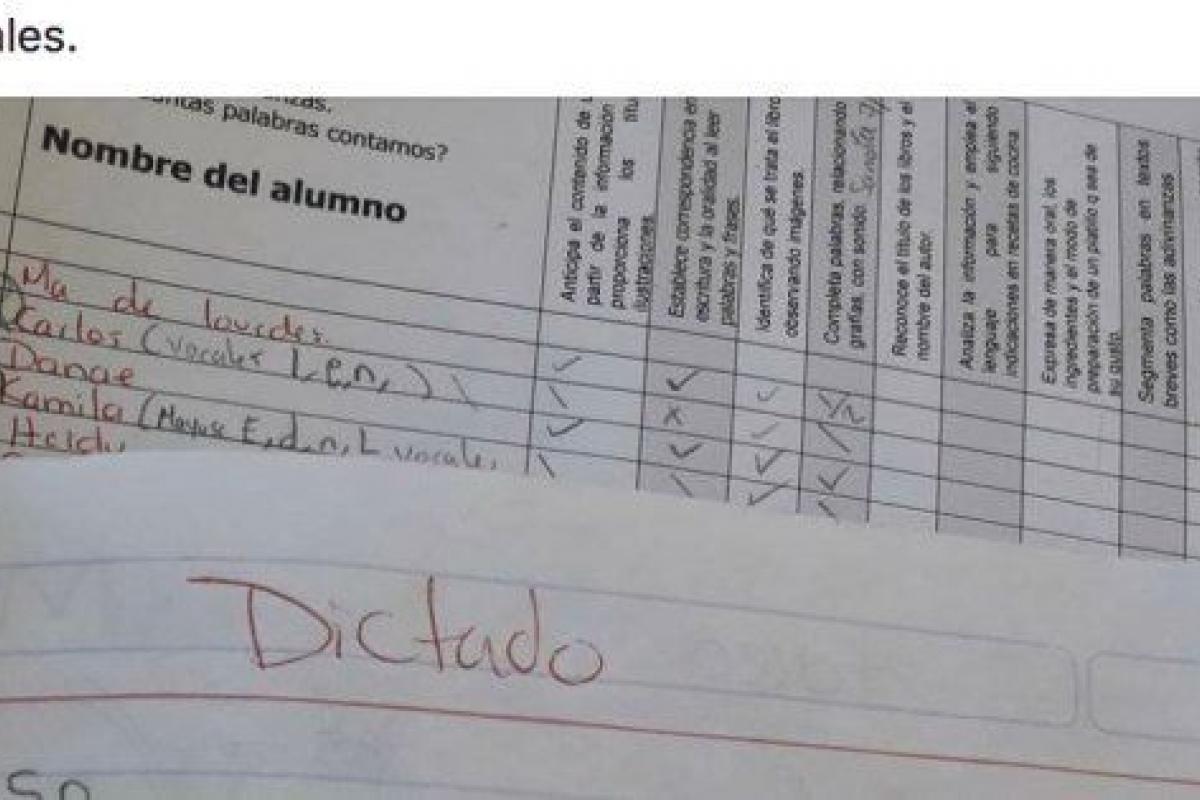 ales.
palabras contamos?
Nombre del alumno
Anticipa el contenido de
partir de la información
proporciona los
ilustraciones.
Establece correspondencia
escritura y la oralidad al leer
palabras y frases.
Identifica de qué se trata el libro
observando imágenes.
Completa palabras, relacionando
grafías, con sonido.
Reconoce el título de los libros y el
nombre del autor.
Analiza la información y emplea el
lenguaje para siguiendo
indicaciones en recetas de cocina
Expresa de manera oral, los
ingredientes y el modo de
preparación de un platillo q sea de
su gusto.
Segmenta palabras en textos
breves como las adivinanzas
Ma de lourdes.
Carlos (vocales L, e, n, )
Danae
Kamila (Mayusc E, d, n, L vocales
Heidi
Dictado
so